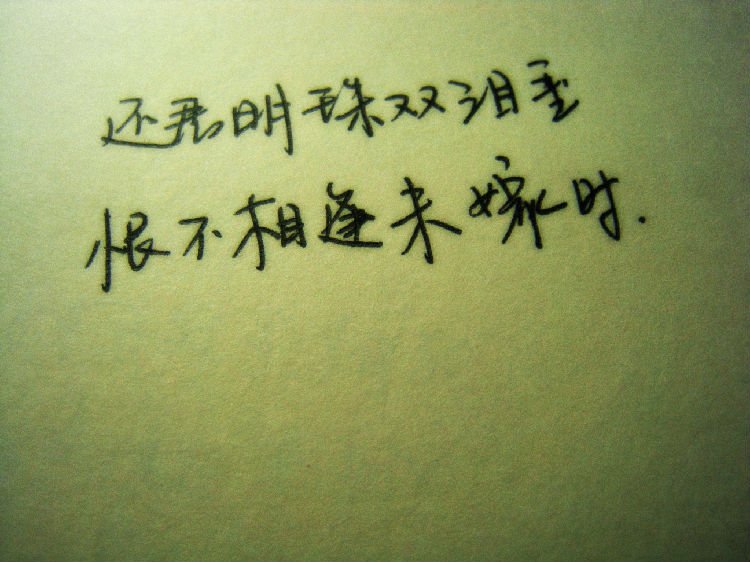 还君明珠双泪垂
恨不相逢未嫁时.